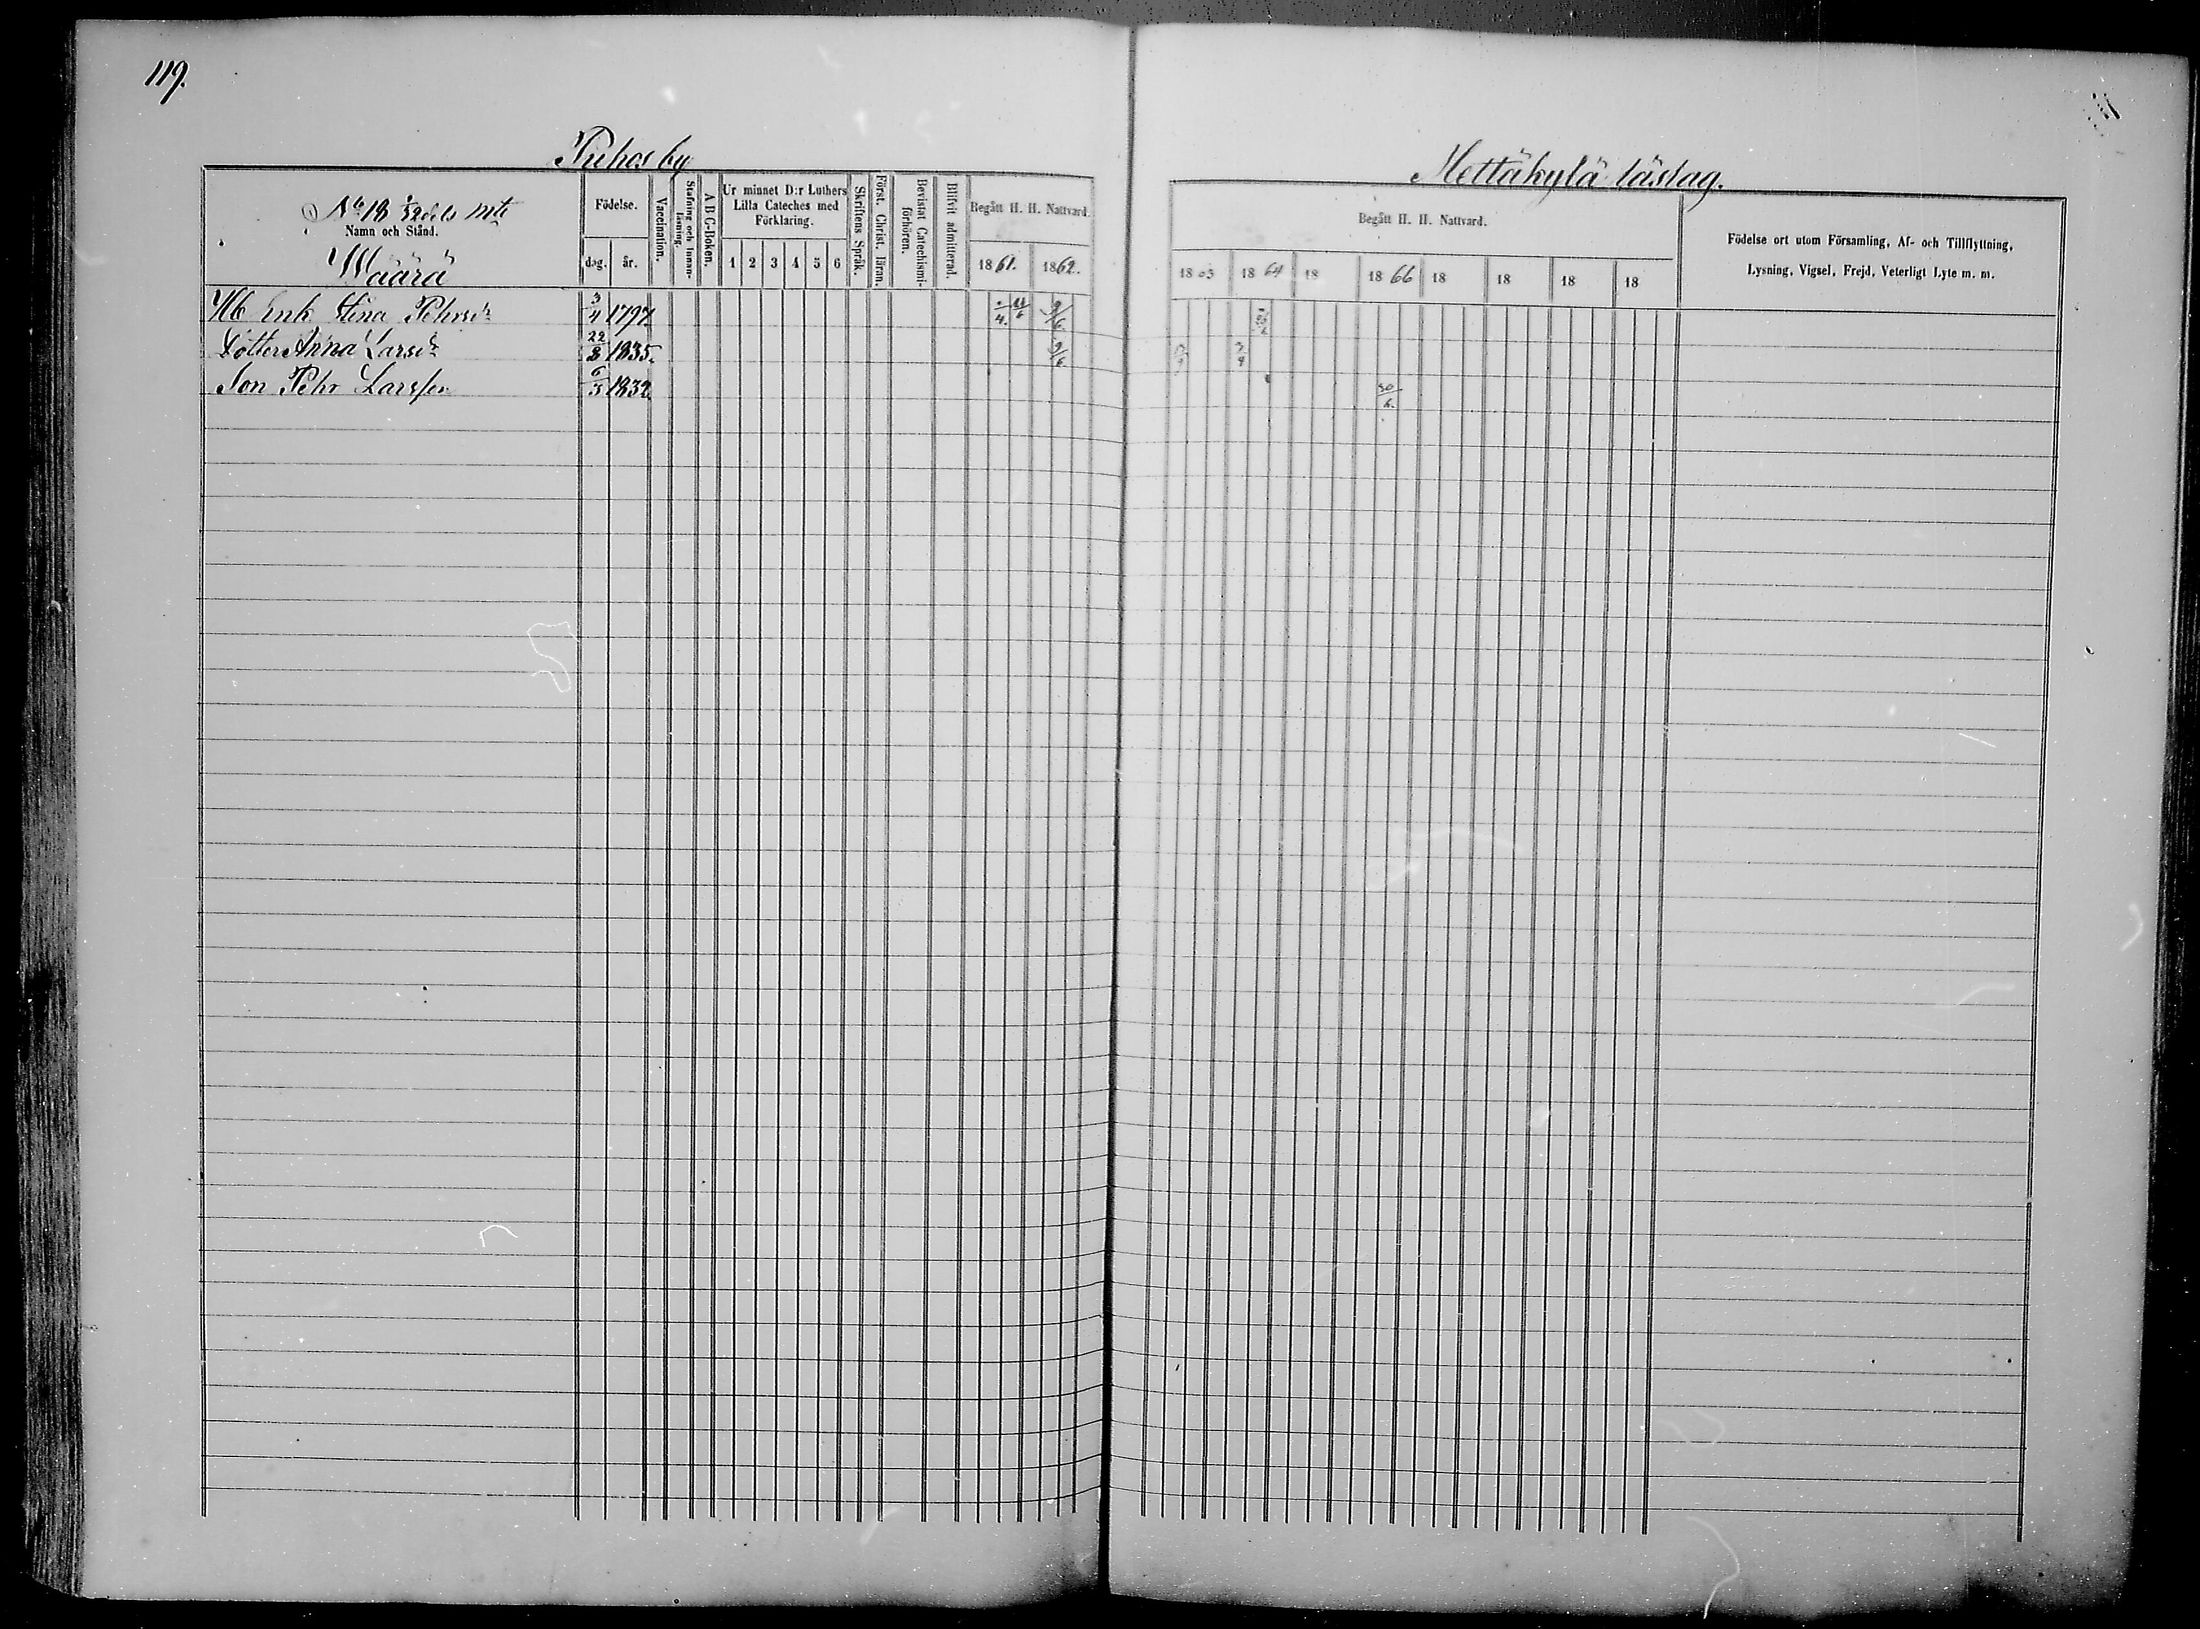 119.
Puhos by
Mettäkylä läslag.
No 18 1/32 dels mtl
Namn och Stånd.
Määrä
Födelse.
dag. år.
Vaccination.
Stafning och Innanläsning.
A B C-Boken.
Ur minnet D:r Luthers
Lilla Cateches med
Förklaring.
1 2 3 4 5 6
Skriftens Språk.
Först. Christ. läran.
Bevistat Catechismiförhören.
Blifvit admitterad.
Begått H. H. Nattvard.
1861. 1862.
Begått H. H. Nattvard.
1863 1864 18 1866 18 18 18 18
Födelse ort utom Församling, Af- och Tillflyttning,
Lysning, Vigsel, Frejd, Veterligt Lyte m. m.
Enk. Stina Pehrsdr 3/4 1797. 9/6
Dotter Anna Larsdr 22/8 1835. 9/6 3/4
Son Pehr Larsson 6/3 1832. 30/6.